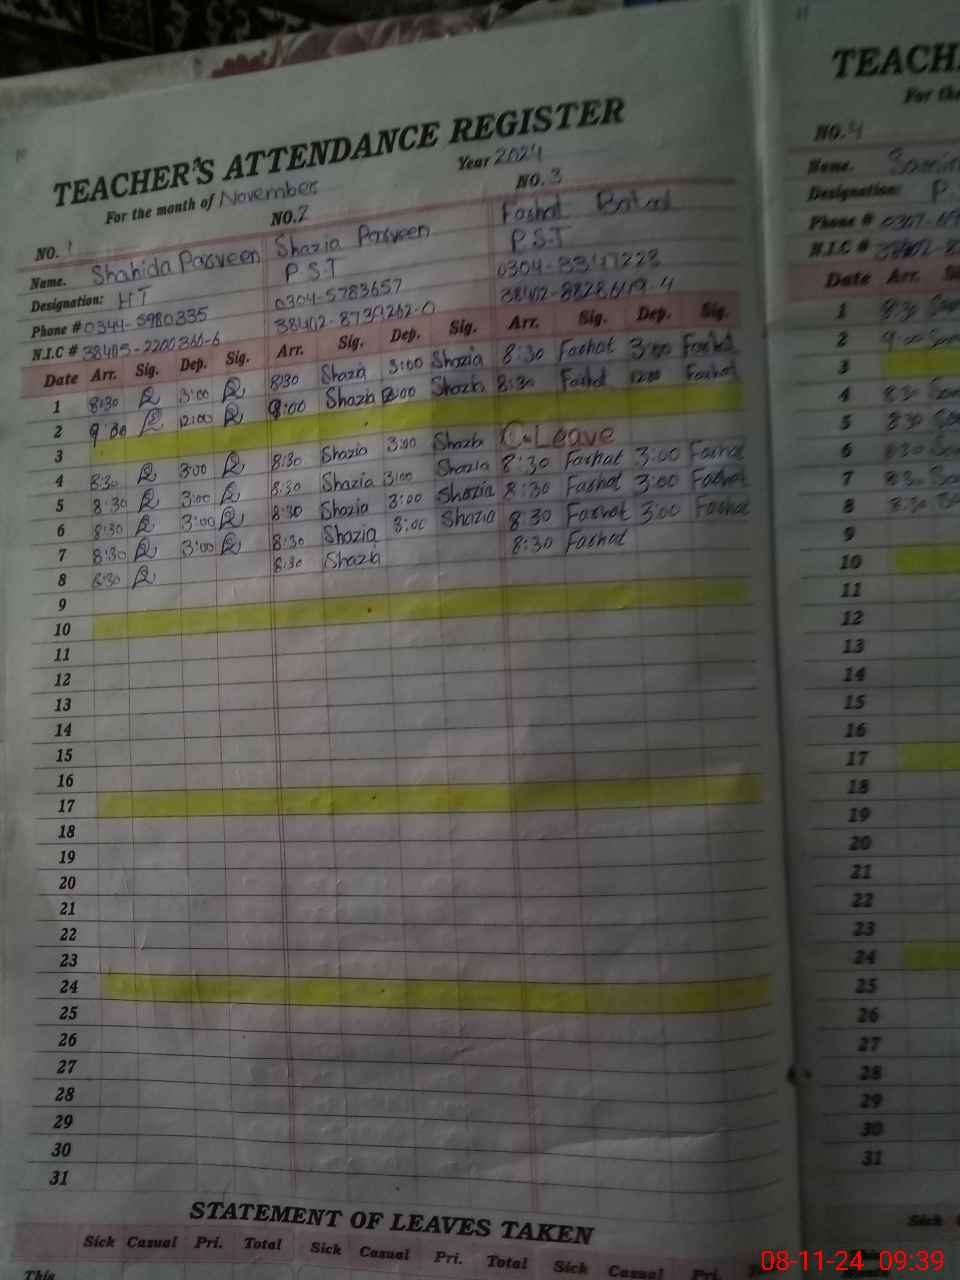 TEACHER'S ATTENDANCE REGISTER
For the month of November Year 2024
NO. 1 NO. 2 NO. 3
Name. Shahida Parveen Shazia Parveen Farhat
Designation: HT P.S.T P.S.T
Phone # 0344-5980335 0304-5783657
N.I.C # 38405-2200366-6 38402-8739262-0
Date Arr. Sig. Dep. Sig. Arr. Sig. Dep. Sig. Arr. Sig. Dep. Sig.
1 8:30 3:00 8:30 Shazia 3:00 Shazia 8:30 Farhat 3:00 Farhat
2 12:00 Shazia Shazia 8:30 Farhat 12:00 Farhat
3
4 8:30 3:00 8:30 Shazia 3:00 Shazia C.Leave
5 8:30 3:00 8:30 Shazia 3:00 Shazia 8:30 Farhat 3:00 Farhat
6 8:30 3:00 8:30 Shazia 3:00 Shazia 8:30 Farhat 3:00 Farhat
7 8:30 3:00 8:30 Shazia 3:00 Shazia 8:30 Farhat 3:00 Farhat
8 8:30 8:30 Shazia 8:30 Farhat
9
10
11
12
13
14
15
16
17
18
19
20
21
22
23
24
25
26
27
28
29
30
31
STATEMENT OF LEAVES TAKEN
Sick Casual Pri. Total Sick Casual Pri. Total Sick Casual Pri.
This
TEACH
For the
NO. 4
Name.
Designation: P.
Phone #
N.I.C #
Date Arr.
1 8:30
2 9:00
3
4 8:30
5 8:30
6 8:30
7 8:30
8 8:30
9
10
11
12
13
14
15
16
17
18
19
20
21
22
23
24
25
26
27
28
29
30
31
Sick
08-11-24 09:39